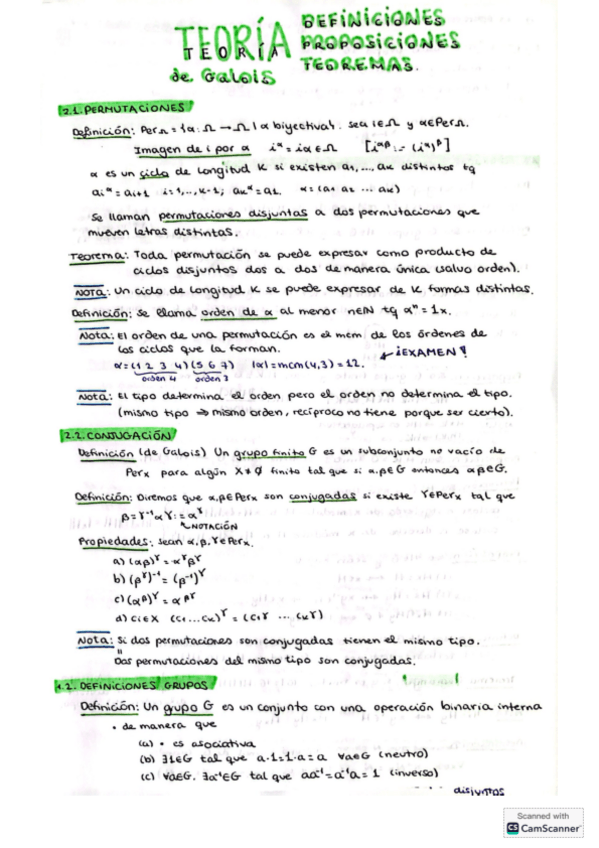 TEORÍA
de Galois
DEFINICIONES
PROPOSICIONES
TEOREMAS.
2.1. PERMUTACIONES
Definición: Per Ω = {α: Ω → Ω | α biyectiva}. sea i∈Ω y α∈PerΩ.
Imagen de i por α i^α = iα ∈ Ω [i^αβ := (i^α)^β]
α es un ciclo de longitud K si existen a1, ..., aK distintos tq
ai^α = ai+1 i=1, .., K-1; aK^α = a1. α = (a1 a2 ... aK)
Se llaman permutaciones disjuntas a dos permutaciones que
mueven letras distintas.
Teorema: Toda permutación se puede expresar como producto de
ciclos disjuntos dos a dos de manera única (salvo orden).
NOTA: Un ciclo de longitud K se puede expresar de K formas distintas.
Definición: Se llama orden de α al menor n∈ℕ tq α^n = 1x.
Nota: El orden de una permutación es el mcm de los órdenes de
los ciclos que la forman.
α = (1 2 3 4)(5 6 7) |α| = mcm(4,3) = 12.
¡EXAMEN!
orden 4 orden 3
Nota: El tipo determina el orden pero el orden no determina el tipo.
(mismo tipo ⇒ mismo orden, recíproco no tiene porque ser cierto).
2.2. CONJUGACIÓN
Definición (de Galois) Un grupo finito G es un subconjunto no vacío de
Perx para algún X ≠ ∅ finito tal que si α, β∈G entonces αβ∈G.
Definición: Diremos que α, β∈Perx son conjugadas si existe γ∈Perx tal que
β = γ⁻¹αγ := α^γ
NOTACIÓN
Propiedades: sean α, β, γ∈Perx.
a) (αβ)^γ = α^γ β^γ
b) (β^γ)⁻¹ = (β⁻¹)^γ
c) (α^β)^γ = α^βγ
d) Ci∈X (C1 ... CK)^γ = (C1γ ... CKγ)
Nota: Si dos permutaciones son conjugadas tienen el mismo tipo.
"
Dos permutaciones del mismo tipo son conjugadas.
1.2. DEFINICIONES GRUPOS
Definición: Un grupo G es un conjunto con una operación binaria interna
· de manera que
(a) · es asociativa
(b) ∃1∈G tal que a·1=1·a=a ∀a∈G (neutro)
(c) ∀a∈G, ∃a⁻¹∈G tal que aa⁻¹=a⁻¹a=1 (inverso)
disjuntos
Scanned with
CS CamScanner